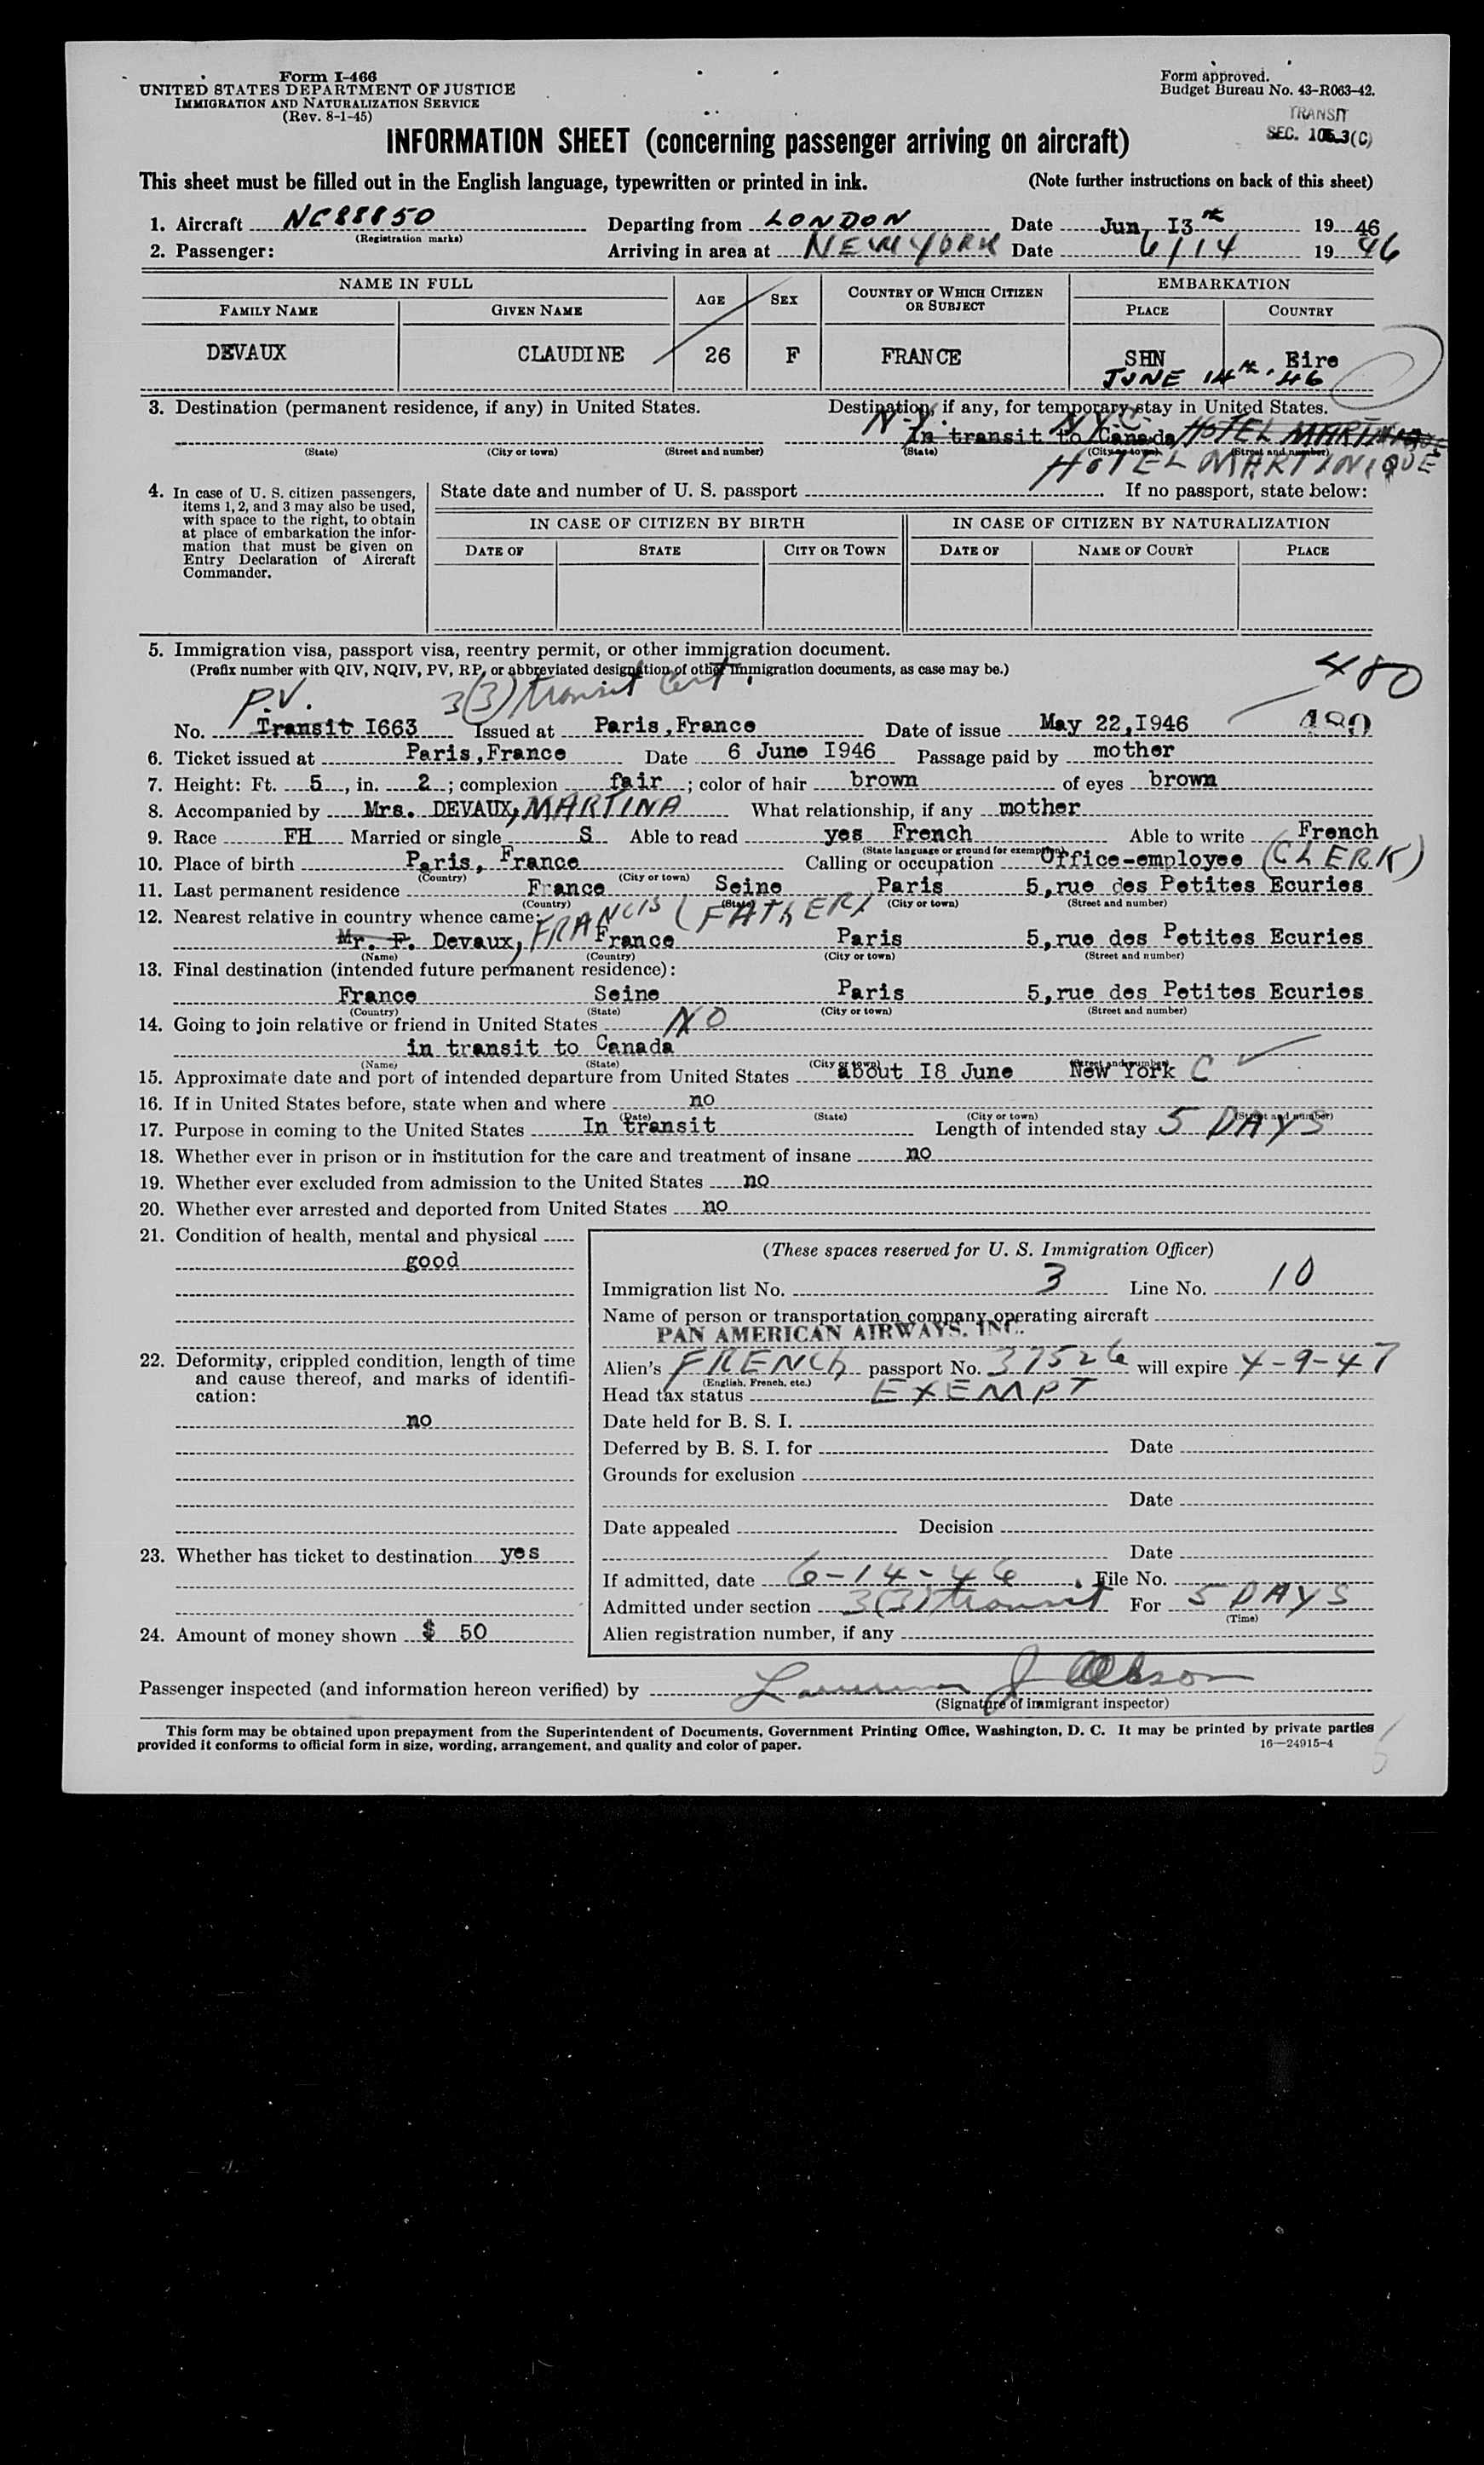 Form I-466
UNITED STATES DEPARTMENT OF JUSTICE
IMMIGRATION AND NATURALIZATION SERVICE
(Rev. 8-1-45)
Form approved.
Budget Bureau No. 43-R063-42.
TRANSIT
SEC. 105.3(C)
INFORMATION SHEET (concerning passenger arriving on aircraft)
This sheet must be filled out in the English language, typewritten or printed in ink. (Note further instructions on back of this sheet)
1. Aircraft NC88850 Departing from LONDON Date Jun I3th 1946
(Registration marks)
2. Passenger: Arriving in area at NEW YORK Date 6/14 1946
NAME IN FULL AGE SEX COUNTRY OF WHICH CITIZEN OR SUBJECT EMBARKATION
FAMILY NAME GIVEN NAME PLACE COUNTRY
DEVAUX CLAUDINE 26 F FRANCE SHN Eire
JUNE 14th. 46
3. Destination (permanent residence, if any) in United States. Destination, if any, for temporary stay in United States.
N-Y. N.Y.C.
In transit to Canada/HOTEL MARTINIQUE
(State) (City or town) (Street and number) (State) (City or town) (Street and number)
HOTEL MARTINIQUE
4. In case of U. S. citizen passengers, items 1, 2, and 3 may also be used, with space to the right, to obtain at place of embarkation the information that must be given on Entry Declaration of Aircraft Commander.
State date and number of U. S. passport If no passport, state below:
IN CASE OF CITIZEN BY BIRTH IN CASE OF CITIZEN BY NATURALIZATION
DATE OF STATE CITY OR TOWN DATE OF NAME OF COURT PLACE
5. Immigration visa, passport visa, reentry permit, or other immigration document.
(Prefix number with QIV, NQIV, PV, RP, or abbreviated designation of other immigration documents, as case may be.)
480
P.V. 3(3) transit Cert.
No. Transit I663 Issued at Paris,France Date of issue May 22,I946 480
6. Ticket issued at Paris,France Date 6 June I946 Passage paid by mother
7. Height: Ft. 5, in. 2; complexion fair; color of hair brown of eyes brown
8. Accompanied by Mrs. DEVAUX, MARTINA What relationship, if any mother
9. Race FH Married or single S Able to read yes French Able to write French
(State language or ground for exemption)
10. Place of birth Paris, France Calling or occupation Office-employee (CLERK)
(Country) (City or town)
11. Last permanent residence France Seine Paris 5,rue des Petites Ecuries
(Country) (State) (City or town) (Street and number)
12. Nearest relative in country whence came: FRANCIS (FATHER)
Mr. F. Devaux, France Paris 5,rue des Petites Ecuries
(Name) (Country) (City or town) (Street and number)
13. Final destination (intended future permanent residence):
France Seine Paris 5,rue des Petites Ecuries
(Country) (State) (City or town) (Street and number)
14. Going to join relative or friend in United States NO
in transit to Canada
(Name) (State) (City or town) (Street and number)
15. Approximate date and port of intended departure from United States about I8 June New York C
16. If in United States before, state when and where no
(Date) (State) (City or town) (Street and number)
17. Purpose in coming to the United States In transit Length of intended stay 5 DAYS
18. Whether ever in prison or in institution for the care and treatment of insane no
19. Whether ever excluded from admission to the United States no
20. Whether ever arrested and deported from United States no
21. Condition of health, mental and physical
good
22. Deformity, crippled condition, length of time and cause thereof, and marks of identification:
no
23. Whether has ticket to destination yes
24. Amount of money shown $ 50
(These spaces reserved for U. S. Immigration Officer)
Immigration list No. 3 Line No. 10
Name of person or transportation company operating aircraft
PAN AMERICAN AIRWAYS. INC.
Alien's FRENCH passport No. 37526 will expire 4-9-47
(English, French, etc.)
Head tax status EXEMPT
Date held for B. S. I.
Deferred by B. S. I. for Date
Grounds for exclusion
Date
Date appealed Decision
Date
If admitted, date 6-14-46. File No.
Admitted under section 3(3) transit For 5 DAYS
(Time)
Alien registration number, if any
Passenger inspected (and information hereon verified) by
(Signature of immigrant inspector)
This form may be obtained upon prepayment from the Superintendent of Documents, Government Printing Office, Washington, D. C. It may be printed by private parties
provided it conforms to official form in size, wording, arrangement, and quality and color of paper. 16—24915-4